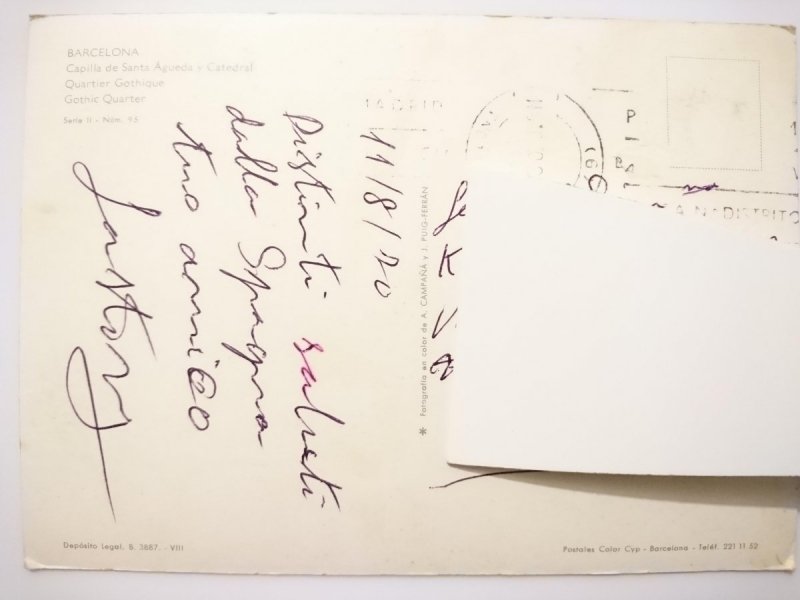 BARCELONA
Capilla de Santa Águeda y Catedral
Quartier Gothique
Gothic Quarter
Serie II - Núm. 95
11/8/70
Distinti saluti
dalla Spagna
tuo amico
MADRID
DISTRITO
* Fotografía en color de A. CAMPAÑÁ y J. PUIG-FERRÁN
Depósito Legal. B. 3887. - VIII
Postales Color Cyp - Barcelona - Teléf. 221 11 52